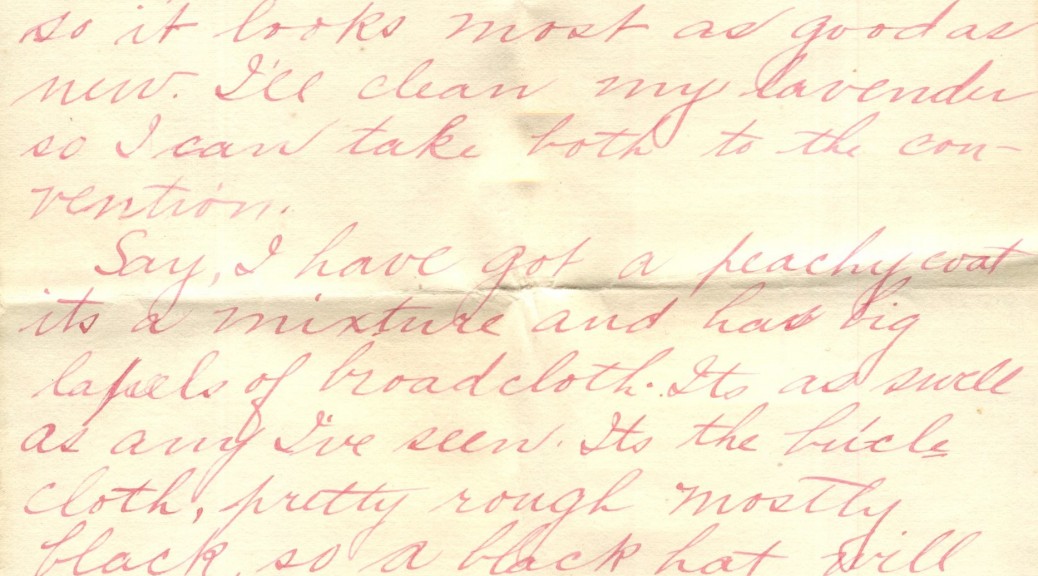 so it looks most as good as
new. I'll clean my lavender
so I can take both to the con-
vention.
Say, I have got a peachy coat
its a mixture and has big
lapels of broadcloth. Its as swell
as any I've seen. Its the
cloth, pretty rough mostly
black, so a black hat will